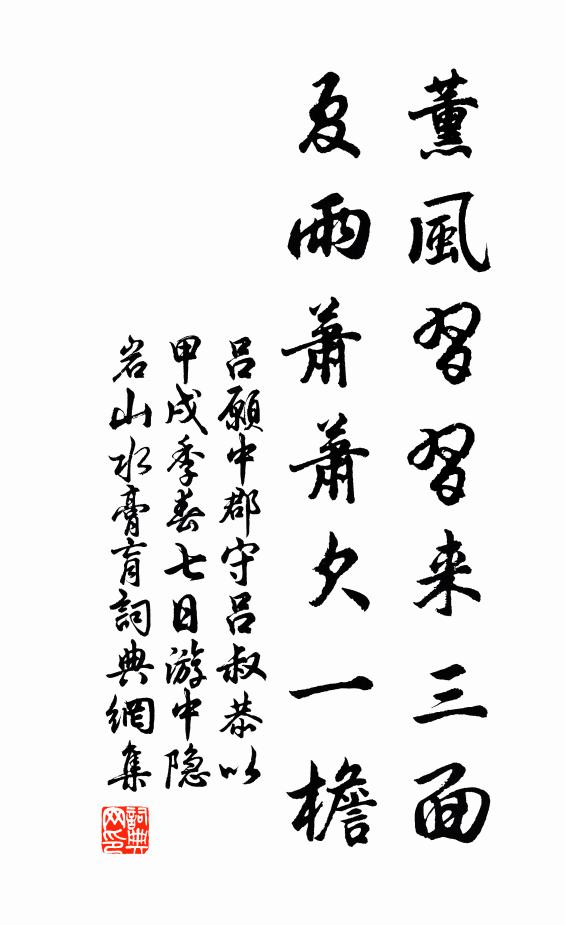 薰風習習来三面
夏雨蕭蕭欠一檐
呂願中郡守呂叔恭以
甲戌季春七日游中隐
岩山水膏肓詞典網集
詞典网印